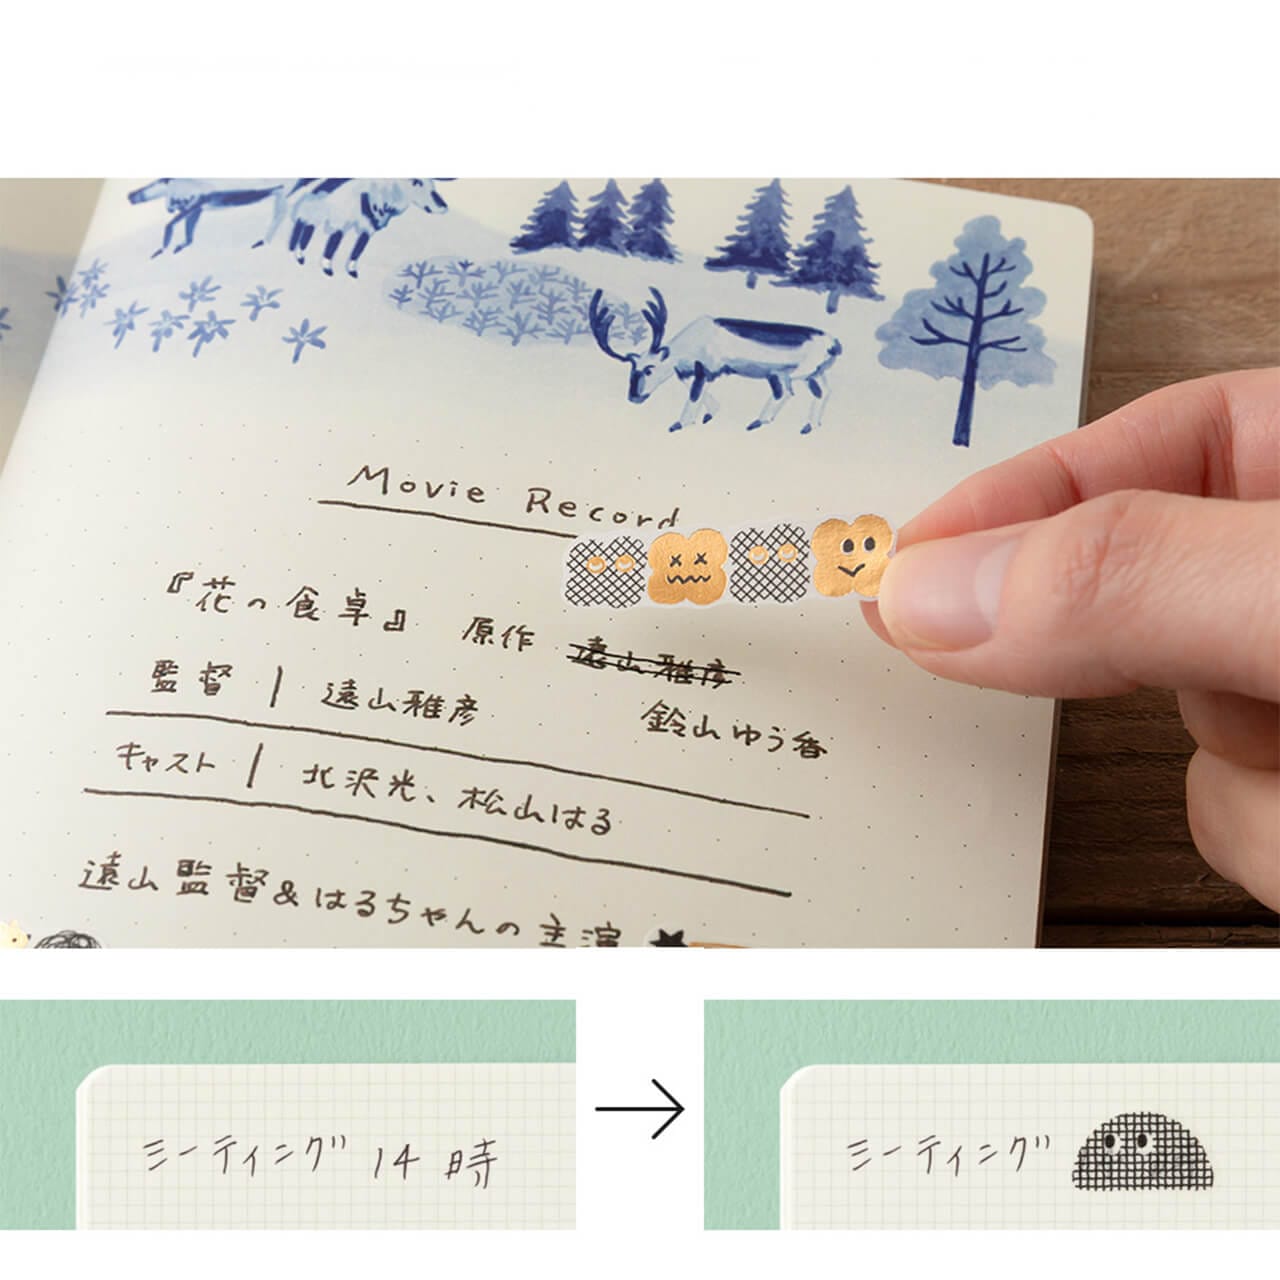 Movie Record
『花の食卓』 原作 遠山雅彦
監督 | 遠山雅彦 鈴山ゆう香
キャスト | 北沢光、松山はる
遠山監督&はるちゃんの主演
ミーティング 14時
ミーティング